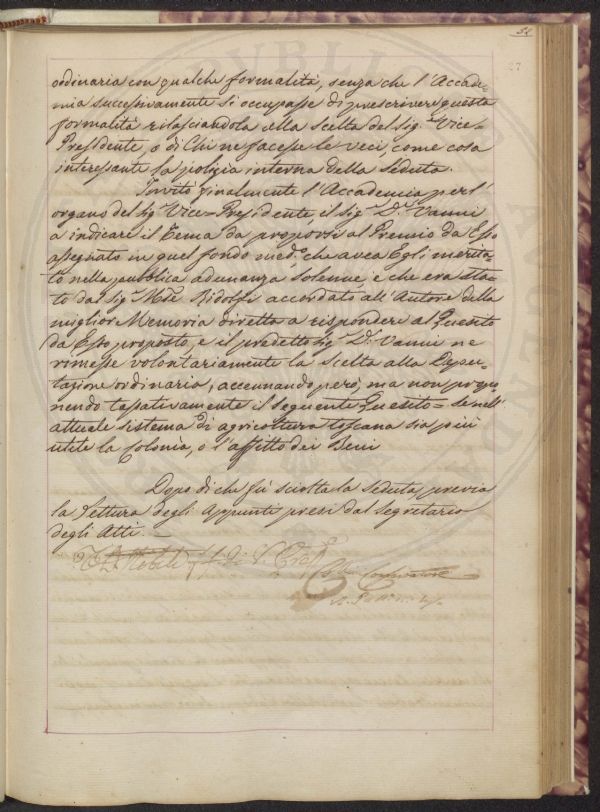 52
27
ordinaria con qualche formalità, senza che l'Accade=
mia successivamente si occupasse di prescrivere questa
formalità rilasciandola alla scelta del Sig.r Vice=
Presidente, o di Chi ne facesse le veci, come cosa
interessante la polizia interna della Seduta.
Invitò finalmente l'Accademia per l'
organo del Sig. Vice=Presidente il Sig. D.r Vanni
a indicare il Tema da proporsi al Premio da Esso
assegnato in quel fondo med.o che avea Egli merita=
to nella pubblica adunanza Solenne, e che era sta=
to dal Sig. Mse Ridolfi accordato all'Autore della
miglior Memoria diretta a rispondere al Quesito
da Esso proposto, e il predetto Sig. D.r Vanni ne
rimesse volontariamente la scelta alla Depu=
tazione ordinaria, accennando però, ma non propo=
nendo tassativamente il seguente Quesito = Se nell'
attuale sistema di agricoltura toscana sia più
utile la Colonia, o l'affitto dei Beni
Dopo di che fu sciolta la Seduta, previa
la Lettura degli Appunti presi dal Segretario
degli Atti. —